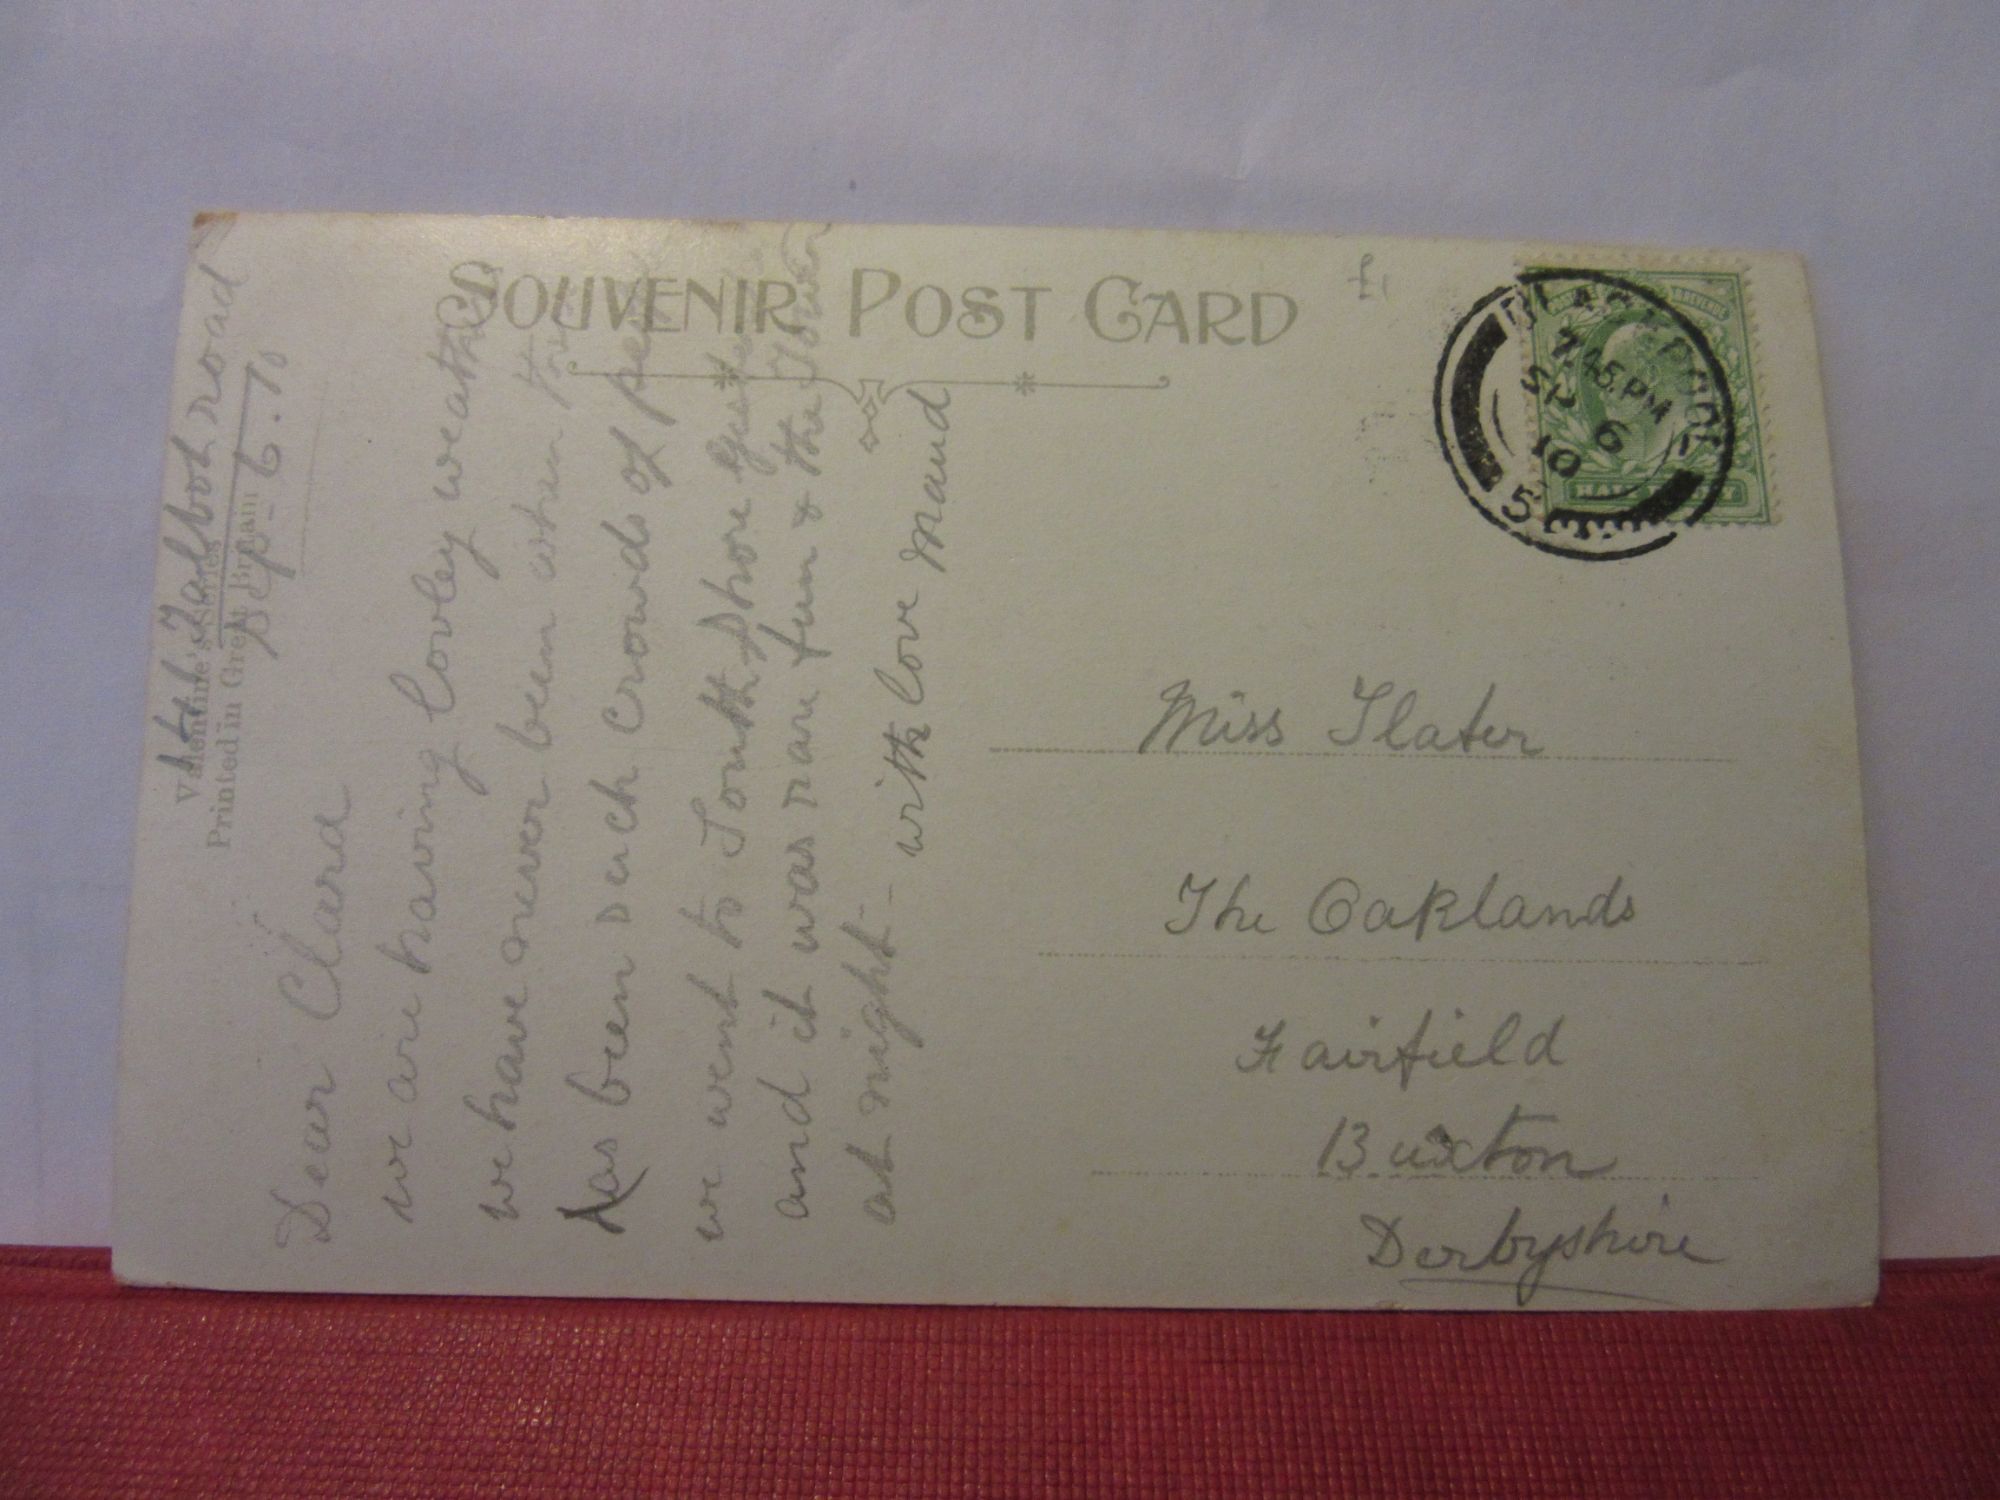 SOUVENIR POST CARD
£1
BLACKPOOL
7.45.PM
SP 6
10
5
HALF PENNY
Valentine's Series
Printed in Great Britain
Talbot road
Sep- 6.10
Dear Clara
we are having lovley weather
we have never been when
has been such crowds of
we went to South Shore
and it was rare fun & the Tower
at night - with love Maud
Miss Slater
The Oaklands
Fairfield
Buxton
Derbyshire